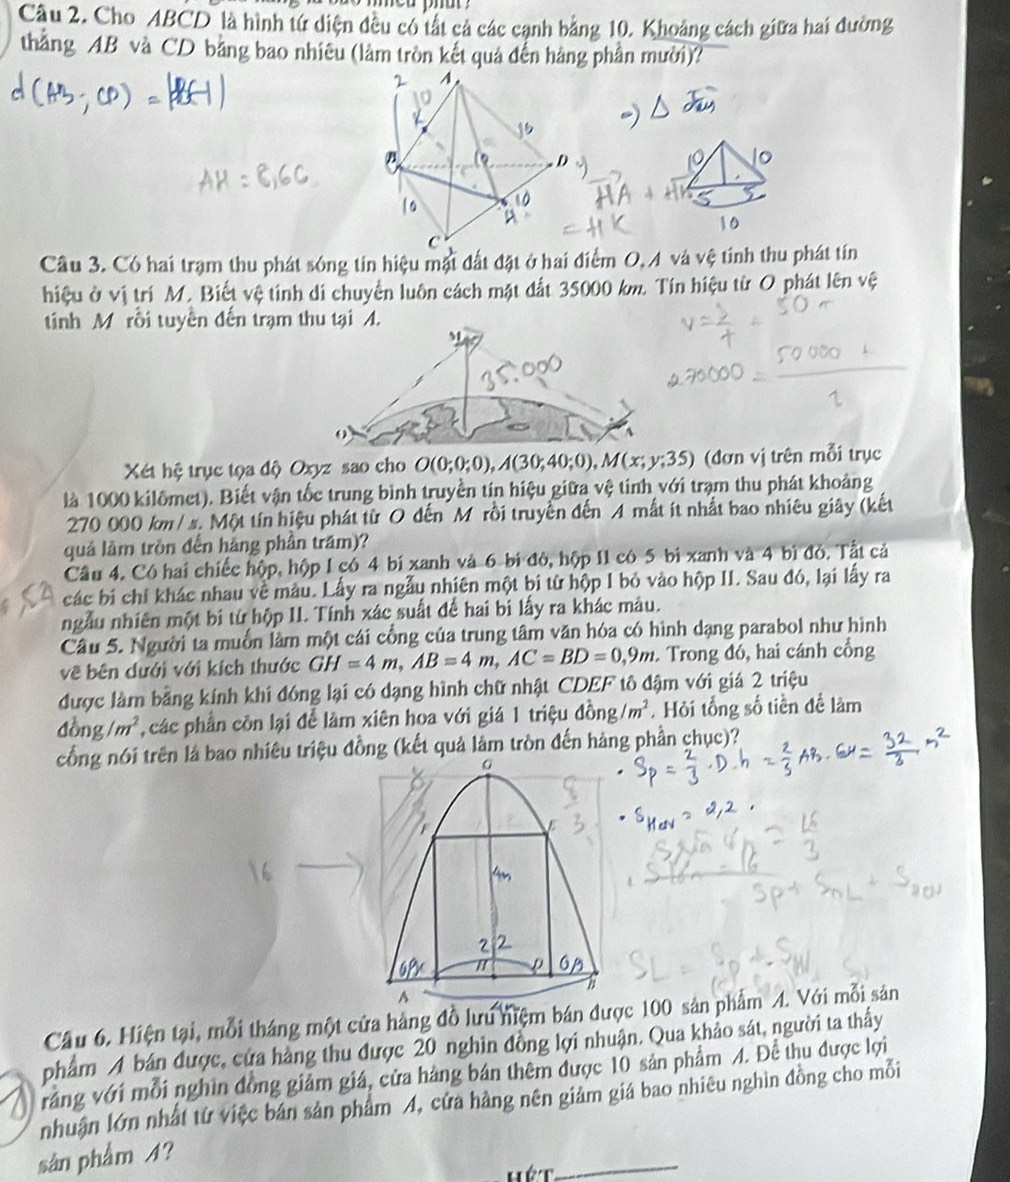 Câu 2. Cho ABCD là hình tứ diện đều có tất cả các cạnh bằng 10. Khoảng cách giữa hai đường
thẳng AB và CD bằng bao nhiêu (làm tròn kết quả đến hàng phần mười)?
d(AB; CD) =
AH = 8,66
2 A
10
K
10
B
10
D
10
10
H
C
=> Δ
HA +
= HK
10 10
5 5
10
Câu 3. Có hai trạm thu phát sóng tín hiệu mặt đất đặt ở hai điểm O, A và vệ tinh thu phát tín
hiệu ở vị trí M. Biết vệ tinh di chuyển luôn cách mặt đất 35000 km. Tín hiệu từ O phát lên vệ
tinh M rồi tuyền đến trạm thu tại A.
M
35.000
O
A
270000 = 50000
Xét hệ trục tọa độ Oxyz sao cho O(0;0;0), A(30;40;0), M(x; y;35) (đơn vị trên mỗi trục
là 1000 kilômet). Biết vận tốc trung bình truyền tín hiệu giữa vệ tinh với trạm thu phát khoảng
270 000 km / s. Một tín hiệu phát từ O đến M rồi truyền đến A mất ít nhất bao nhiêu giây (kết
quả làm tròn đến hàng phần trăm)?
Câu 4. Có hai chiếc hộp, hộp I có 4 bi xanh và 6 bi đỏ, hộp II có 5 bi xanh và 4 bi đỏ. Tất cả
các bi chỉ khác nhau về màu. Lấy ra ngẫu nhiên một bi từ hộp I bỏ vào hộp II. Sau đó, lại lấy ra
ngẫu nhiên một bi từ hộp II. Tính xác suất để hai bi lấy ra khác màu.
Câu 5. Người ta muốn làm một cái cổng của trung tâm văn hóa có hình dạng parabol như hình
vẽ bên dưới với kích thước GH = 4 m, AB = 4 m, AC = BD = 0,9m. Trong đó, hai cánh cổng
được làm bằng kính khi đóng lại có dạng hình chữ nhật CDEF tô đậm với giá 2 triệu
đồng/m², các phần còn lại để làm xiên hoa với giá 1 triệu đồng/m². Hỏi tổng số tiền để làm
cổng nói trên là bao nhiêu triệu đồng (kết quả làm tròn đến hàng phần chục)?
• Sp = 2/3 . D.h = 2/3 AB. GH = 32/3 m²
• SHCN = 2,2 .
16
G
F
E
4m
2 2
H
D
A
B
4m
Câu 6. Hiện tại, mỗi tháng một cửa hàng đồ lưu niệm bán được 100 sản phẩm A. Với mỗi sản
phẩm A bán được, cửa hàng thu được 20 nghìn đồng lợi nhuận. Qua khảo sát, người ta thấy
rằng với mỗi nghìn đồng giảm giá, cửa hàng bán thêm được 10 sản phẩm A. Để thu được lợi
nhuận lớn nhất từ việc bán sản phẩm A, cửa hàng nên giảm giá bao nhiêu nghìn đồng cho mỗi
sản phẩm A?
HẾT